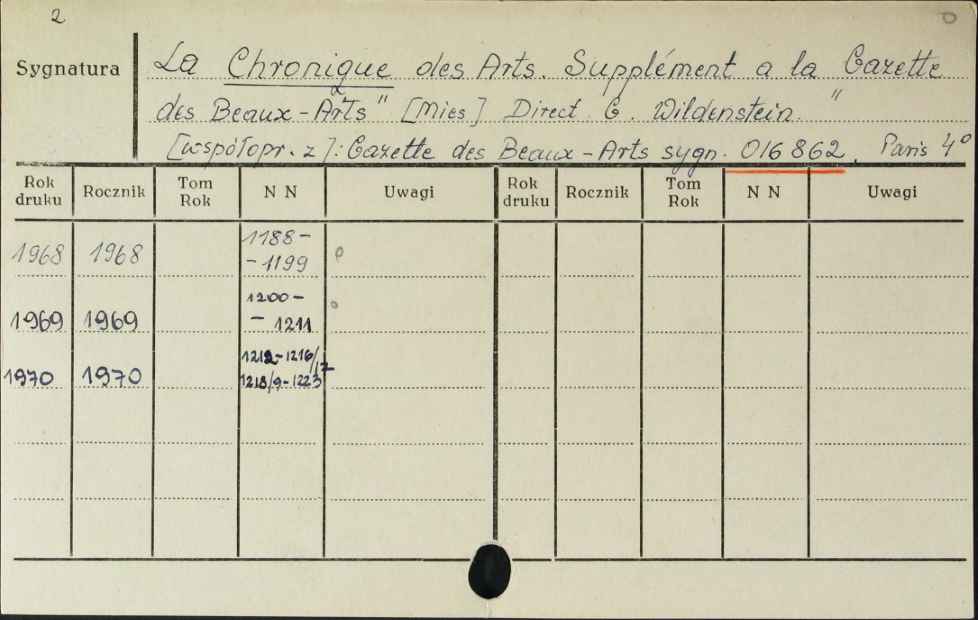 2
Sygnatura
La Chronique des Arts. Supplément a la "Gazette
des Beaux-Arts" [Mies] Direct. G. Wildenstein.
[współopr. z]: Gazette des Beaux-Arts sygn. 016862. Paris 4°
Rok druku Rocznik Tom Rok N N Uwagi Rok druku Rocznik Tom Rok N N Uwagi
1968 1968 1188-
-1199
1969 1969 1200-
- 1211
1970 1970 1212-1216/17
1218/9-1223